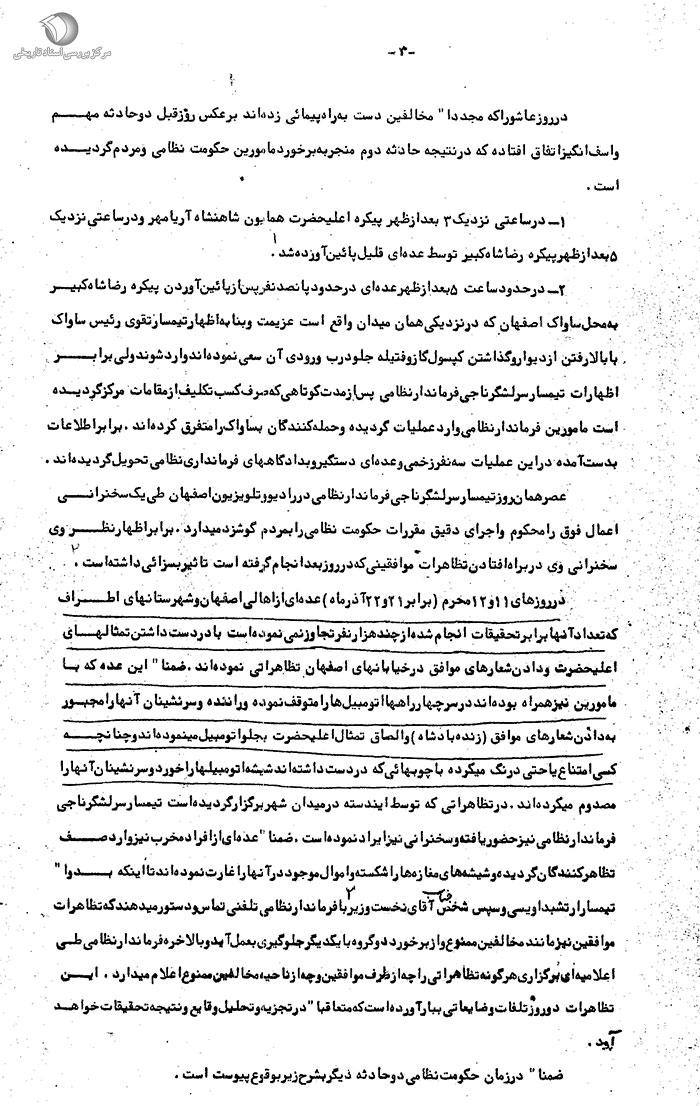 مرکز بررسی اسناد تاریخی
-۳-
در روز عاشورا که مجددا" مخالفین دست به راه پیمائی زده‌اند برعکس روز قبل دو حادثه مهم
و اسف انگیز اتفاق افتاده که در نتیجه حادثه دوم منجر به برخورد مامورین حکومت نظامی و مردم گردیده
است .
۱- در ساعتی نزدیک ۳ بعد از ظهر پیکره اعلیحضرت همایون شاهنشاه آریامهر و در ساعتی نزدیک
۵ بعد از ظهر پیکره رضا شاه کبیر توسط عده‌ای قلیل پائین آورده شد . ۱
۲- در حدود ساعت ۵ بعد از ظهر عده‌ای در حدود پانصد نفر پس از پائین آوردن پیکره رضا شاه کبیر
به محل ساواک اصفهان که در نزدیکی همان میدان واقع است عزیمت و بنا به اظهار تیمسار تقوی رئیس ساواک
با بالا رفتن از دیوار و گذاشتن کپسول گاز و فتیله جلو درب ورودی آن سعی نموده‌اند وارد شوند ولی برابر
اظهارات تیمسار سرلشگر ناجی فرماندار نظامی پس از مدت کوتاهی که صرف کسب تکلیف از مقامات مرکز گردیده
است مامورین فرماندار نظامی وارد عملیات گردیده و حمله کنندگان بساواک را متفرق کرده‌اند . برابر اطلاعات
بدست آمده در این عملیات سه نفر زخمی و عده‌ای دستگیر و بدادگاههای فرمانداری نظامی تحویل گردیده‌اند .
عصر همان روز تیمسار سرلشگر ناجی فرماندار نظامی در رادیو و تلویزیون اصفهان طی یک سخنرانی
اعمال فوق را محکوم و اجرای دقیق مقررات حکومت نظامی را بمردم گوشزد میدارد . برابر اظهار نظر وی
سخنرانی وی در براه افتادن تظاهرات موافقینی که در روز بعد انجام گرفته است تاثیر بسزائی داشته است . ۲
در روزهای ۱۱ و ۱۲ محرم (برابر ۲۱ و ۲۲ آذرماه ) عده‌ای از اهالی اصفهان و شهرستانهای اطراف
که تعداد آنها برابر تحقیقات انجام شده از چند هزار نفر تجاوز نمی نموده است با در دست داشتن تمثالهای
اعلیحضرت و دادن شعارهای موافق در خیابانهای اصفهان تظاهراتی نموده‌اند . ضمنا" این عده که با
مامورین نیز همراه بوده‌اند در سر چهار راهها اتومبیل ها را متوقف نموده و راننده و سرنشینان آنها را مجبور
به دادن شعارهای موافق (زنده باد شاه ) و الصاق تمثال اعلیحضرت بجلو اتومبیل مینموده‌اند و چنانچه
کسی امتناع یا حتی درنگ میکرده با چوبهائی که در دست داشته‌اند شیشه اتومبیلها را خورد و سرنشینان آنها را
مصدوم میکرده‌اند . در تظاهراتی که توسط ایندسته در میدان شهر برگزار گردیده است تیمسار سرلشگر ناجی
فرماندار نظامی نیز حضور یافته و سخنرانی نیز ایراد نموده است . ضمنا" عده‌ای از افراد مخرب نیز وارد صف
تظاهر کنندگان گردیده و شیشه های مغازه ها را شکسته و اموال موجود در آنها را غارت نموده‌اند تا اینکه بدوا"
تیمسار ارتشبد اویسی و سپس شخص جناب آقای نخست وزیر ۲ با فرماندار نظامی تلفنی تماس و دستور میدهند که تظاهرات
موافقین نیز مانند مخالفین ممنوع و از برخورد دو گروه با یکدیگر جلوگیری بعمل آید و بالاخره فرماندار نظامی طی
اعلامیه‌ای برگزاری هر گونه تظاهراتی را چه از طرف موافقین و چه از ناحیه مخالفین ممنوع اعلام میدارد . این
تظاهرات دو روزه تلفات و ضایعاتی ببار آورده است که متعاقبا" در تجزیه و تحلیل وقایع و نتیجه تحقیقات خواهد
آمد .
ضمنا" در زمان حکومت نظامی دو حادثه دیگر بشرح زیر بوقوع پیوست است .